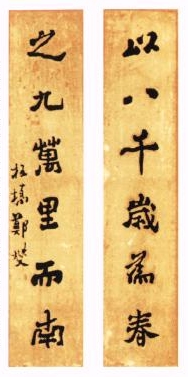 以八千歲為春
之九萬里而南
板橋鄭燮